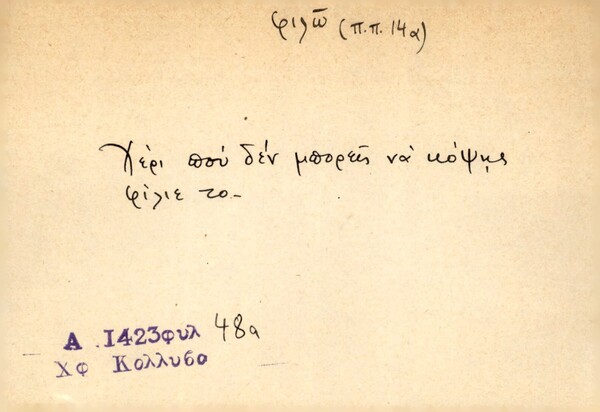 φιλῶ (π.π. 14α)
Χέρι πού δέν μπορεῖς νά κόψης
φίλιε το-
Α .1423φυλ 48α
Χφ Κολλυβα